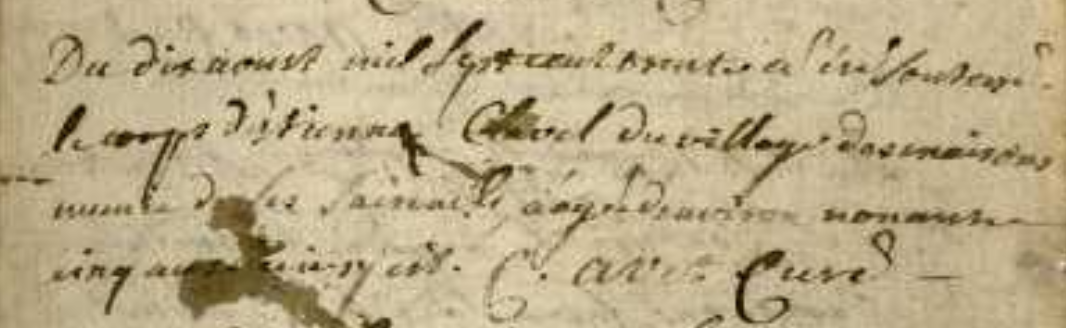 Du dix aoust mil sept cent trente a été soub terré
le corps d'étienne Clavel du village des maisons
munis d ses sacrem'ts, aagé denviron nonante
cinq ans C. avet Curé